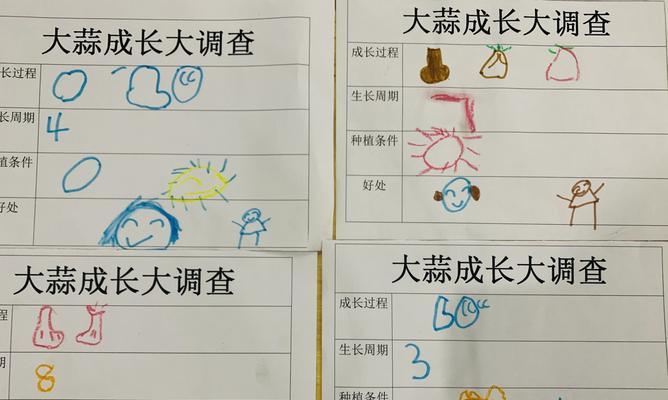 大蒜成长大调查
长过程
长周期 4
植条件
好处
大蒜成长大调查
成长过程
生长周期 7
种植条件
好处
大蒜成长大调查
程
期 8
大蒜成长大调查
成长过程
生长周期 3
种植条件